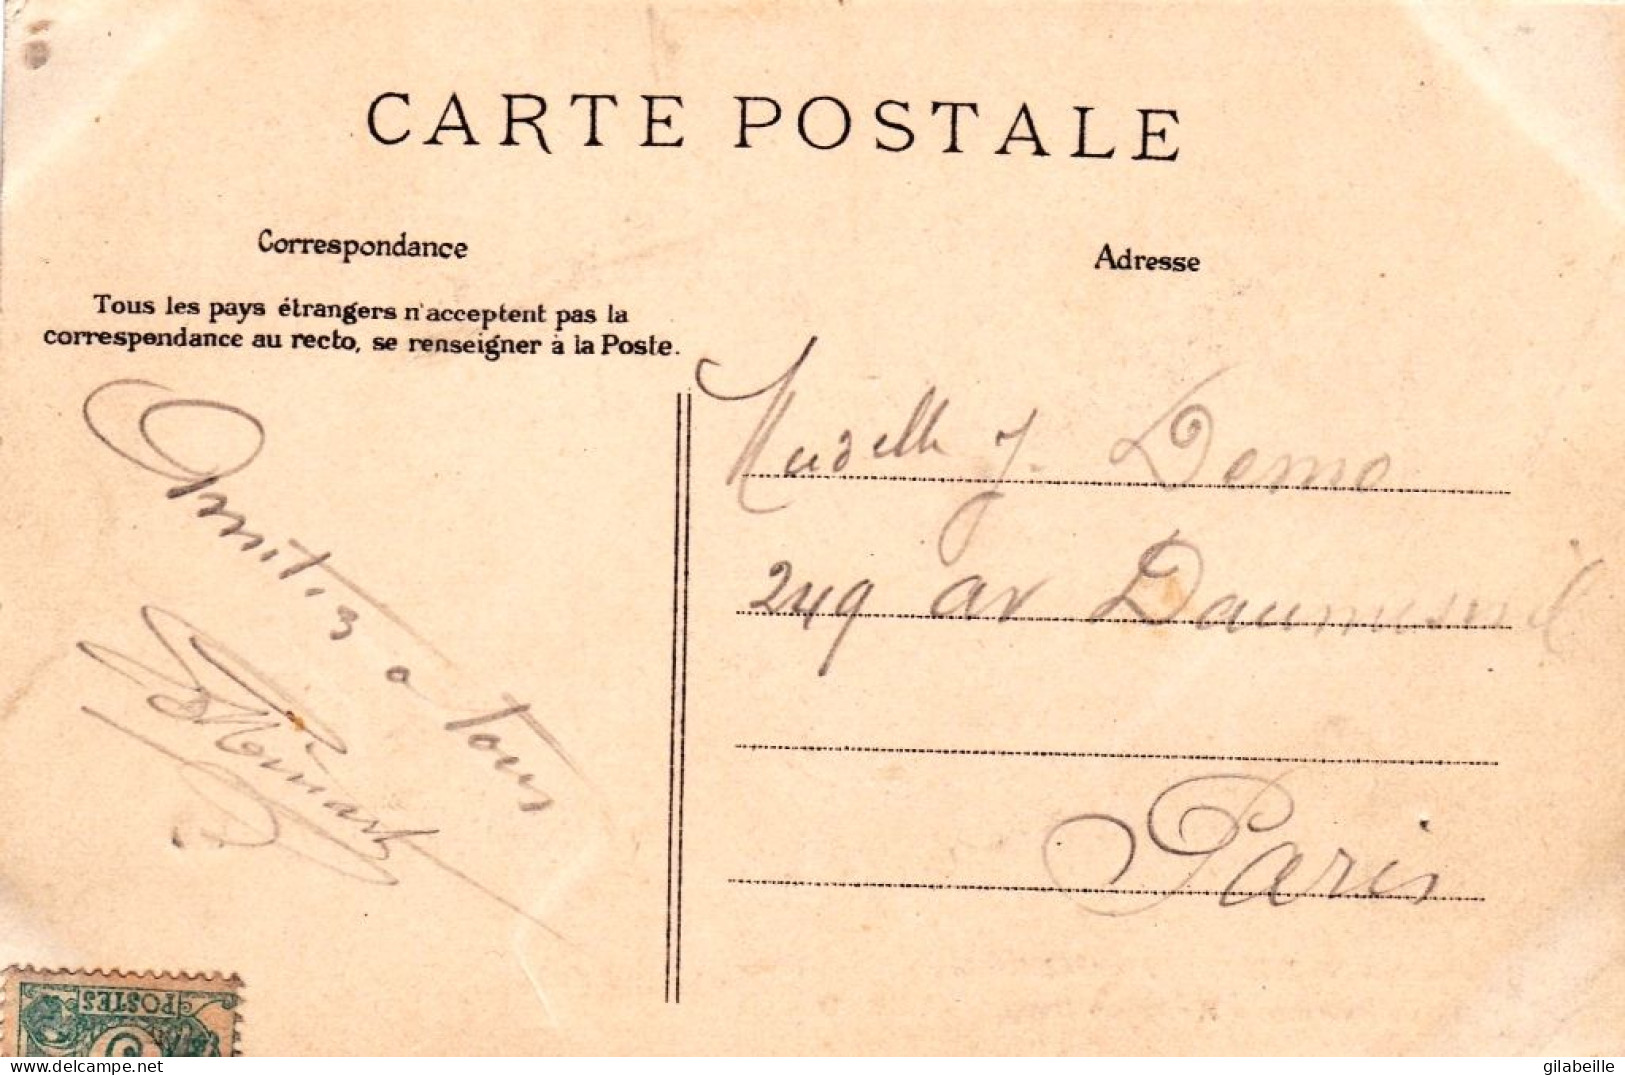 CARTE POSTALE
Correspondance
Tous les pays étrangers n'acceptent pas la
correspondance au recto, se renseigner à la Poste.
Amitiés
a tous
Adresse
J. Demo
249 av Daumesnil
Paris
POSTES
5
delcampe.net
gilabeille